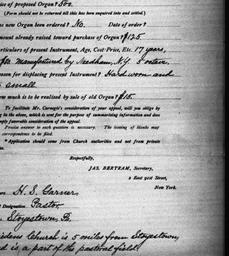 of proposed Organ? 500
(Form should not be returned till this has been inquired into and settled.)
new Organ been ordered? No. Date of order?
mount already raised toward purchase of Organ? $125
articulars of present Instrument, Age, Cost-Price, Etc. 17 years,
manufactured by Needham, N.Y.
eason for displacing present Instrument? Hard worn and
small
ow much is to be realised by sale of old Organ? $15.
To facilitate Mr. Carnegie's consideration of your appeal, will you oblige by
in the above, which is sent for the purpose of summarizing information and thus
favorable consideration of the appeal.
Precise answer to each question is necessary. The issuing of blanks may
correspondence to be filed.
* Application should come from Church authorities and not from private
Respectfully,
JAS. BERTRAM, Secretary,
2 East 91st Street,
New York.
H. S. Garner
Designation. Pastor
Stoyestown, Pa
Church is 5 miles from Stoyestown,
d is a part of the pastoral field.